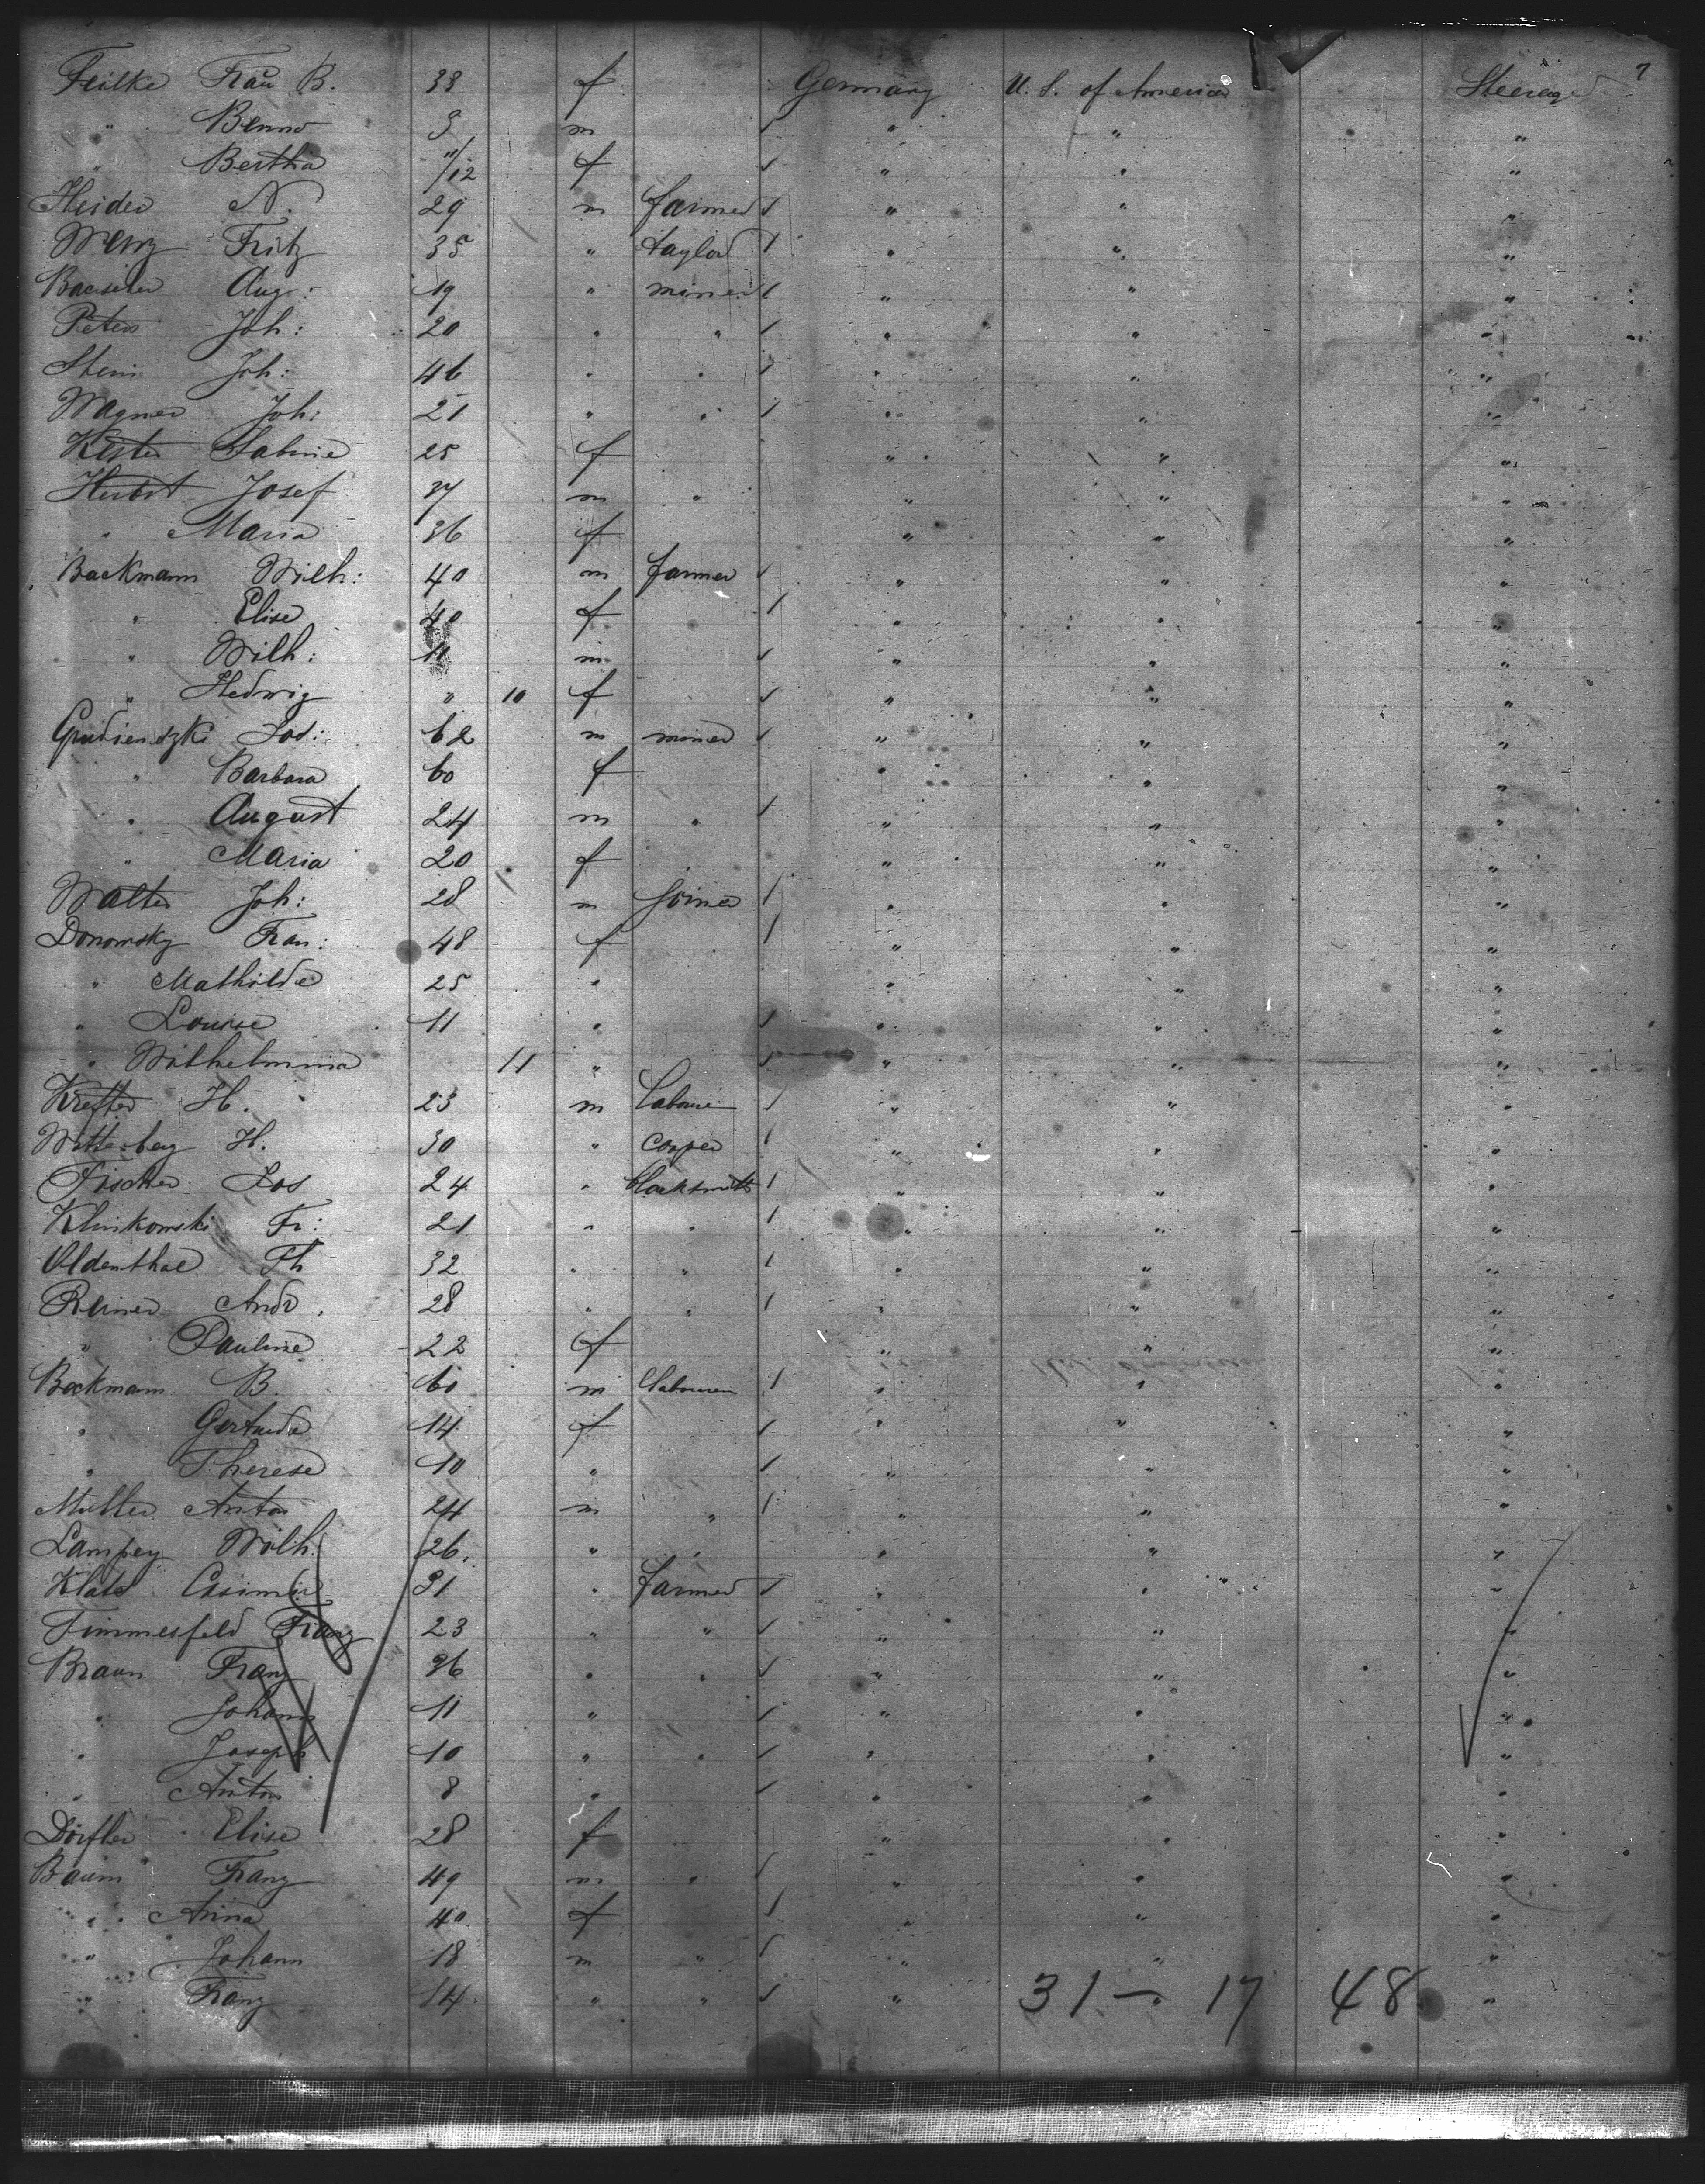 7
Feilke Frau B. 38 f Germany U. S. of America Steerage
" Benno 9 m " " "
" Bertha 11/12 f " " "
Heider N. 29 m farmer " " "
Wenz Fritz 35 " taylor " " "
Aug: 19 " miner " " "
Peters Joh: 20 " " " " "
Stein Joh: 46 " " " " "
Wagner Joh: 21 " " " " "
Kester Sabine 25 f " " "
Herbst Josef 37 m " " " "
" Maria 36 f " " "
Backmann Wilh: 40 m farmer " " "
" Elise 40 f " " "
" Wilh: 11 m " " "
" Hedwig " 10 f " " "
Grudiendzki Jos: 62 m miner " " "
" Barbara 60 f " " "
" August 24 m " " " "
" Maria 20 f " " "
Walter Joh: 28 m joiner " " "
Donomsky Frau: 48 f " " "
" Mathilde 25 " " " "
" Louise 11 " " " "
" Wilhelmina 11 " " " "
Krefter H. 23 m " " "
Wittenberg H. 30 " cooper " " "
Fischer Jos 24 " blacksmith " " "
Klinkomski Fr: 21 " " " " "
Oldenthal Th 32 " " " " "
Reimer Andr. 28 " " " " "
" Pauline 22 f " " "
Beckmann B. 60 m labourer " " "
" Gertrude 14 f " " "
" Therese 10 " " " "
Muller Anton 24 m " " " "
Lampey Wilh. 26. " " " " "
Klatt Casimir 31 " farmer " " "
Timmesfeld Franz 23 " " " " "
Braun Franz 36 " " " " "
" Johann 11 " " " "
" Joseph 10 " " " " "
" Anton 8 " " " "
Dörfler Elise 28 f " " "
Baum Franz 49 m " " " "
" Anna 40 f " " "
" Johann 18 m " " " "
" Franz 14 " " " "
31 — 17 48